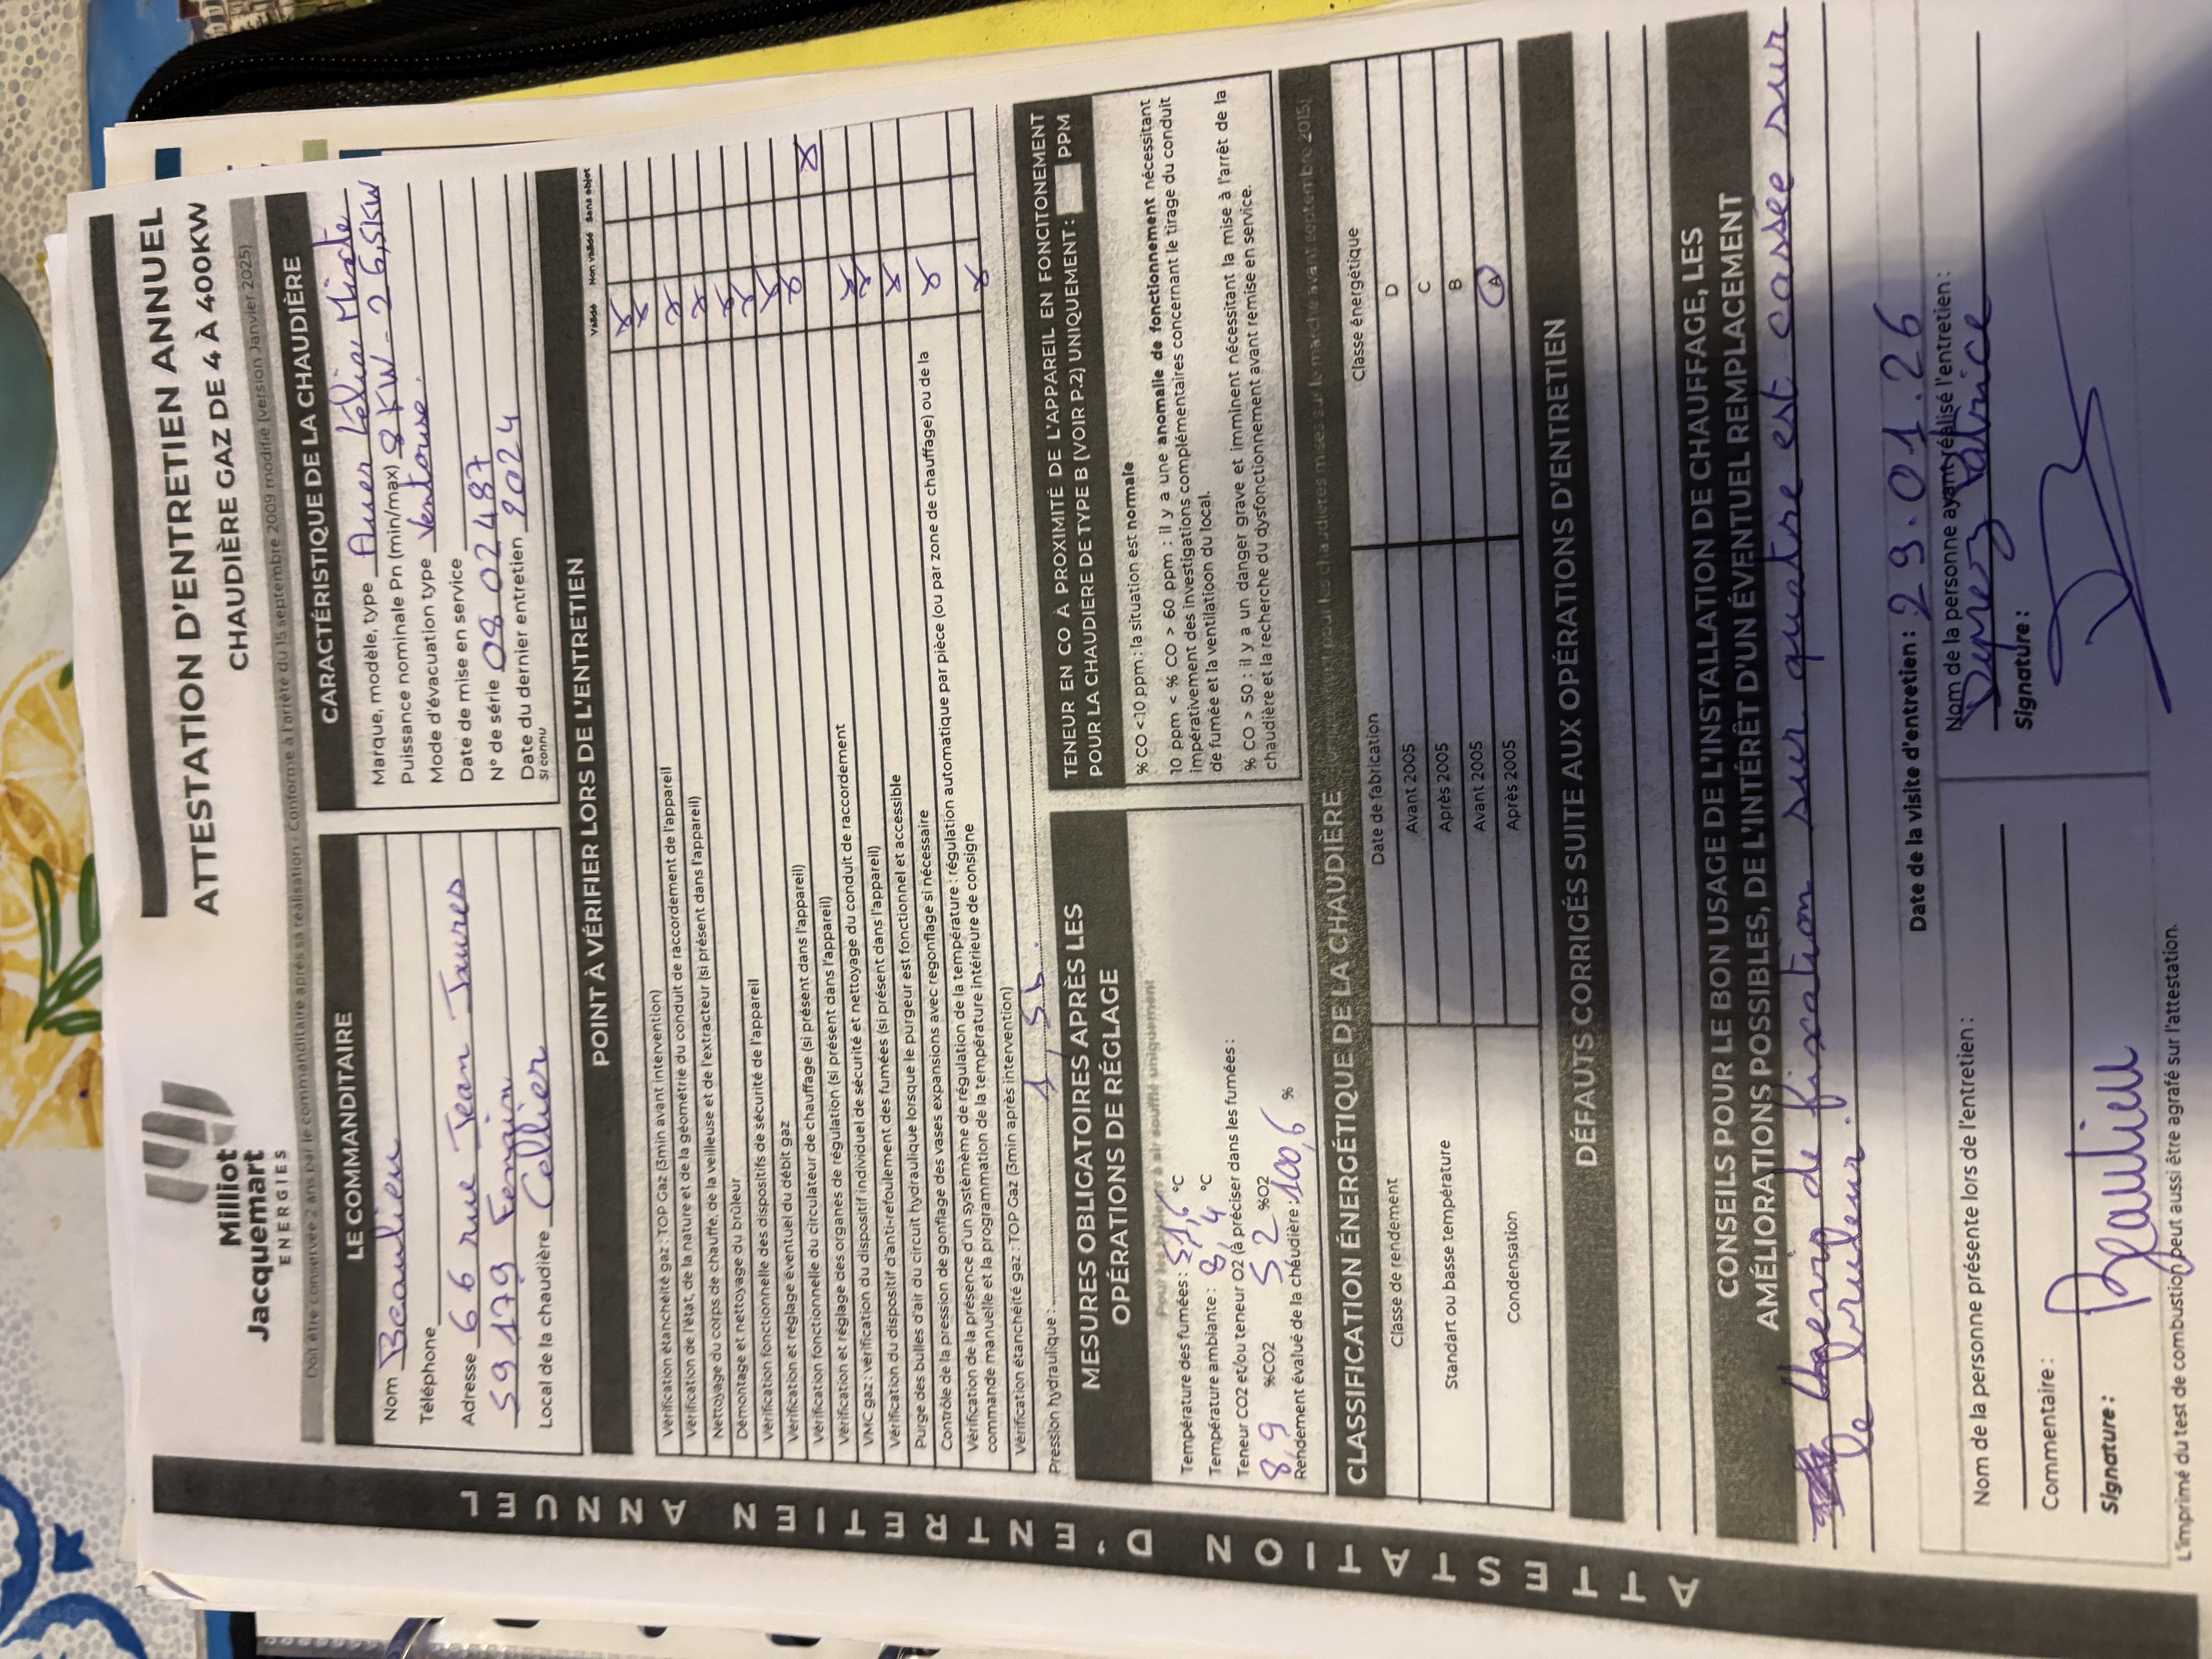 Milliot
Jacquemart
ENERGIES
ATTESTATION D'ENTRETIEN ANNUEL
CHAUDIÈRE GAZ DE 4 À 400KW
Doit être conservée 2 ans par le commanditaire après sa réalisation. Conforme à l'arrêté du 15 septembre 2009 modifié (version Janvier 2025)
ATTESTATION D'ENTRETIEN ANNUEL
LE COMMANDITAIRE
Nom Beaulieu
Téléphone
Adresse 66 rue Jean Jaures
59179 Fenain
Local de la chaudière Cellier
CARACTÉRISTIQUE DE LA CHAUDIÈRE
Marque, modèle, type
Puissance nominale Pn (min/max) 8 KW - 26,5KW
Mode d'évacuation type Ventouse.
Date de mise en service
N° de série 08 02487
Date du dernier entretien 2024
Si connu
POINT À VÉRIFIER LORS DE L'ENTRETIEN
Validé Non validé Sans objet
Vérification étanchéité gaz : TOP Gaz (3min avant intervention) X
Vérification de l'état, de la nature et de la géométrie du conduit de raccordement de l'appareil X
Nettoyage du corps de chauffe, de la veilleuse et de l'extracteur (si présent dans l'appareil) X
Démontage et nettoyage du brûleur X
Vérification fonctionnelle des dispositifs de sécurité de l'appareil X
Vérification et réglage éventuel du débit gaz X
Vérification fonctionnelle du circulateur de chauffage (si présent dans l'appareil) X
Vérification et réglage des organes de régulation (si présent dans l'appareil) X
VMC gaz : vérification du dispositif individuel de sécurité et nettoyage du conduit de raccordement X
Vérification du dispositif d'anti-refoulement des fumées (si présent dans l'appareil) X
Purge des bulles d'air du circuit hydraulique lorsque le purgeur est fonctionnel et accessible X
Contrôle de la pression de gonflage des vases expansions avec regonflage si nécessaire X
Vérification de la présence d'un systèmème de régulation de la température : régulation automatique par pièce (ou par zone de chauffage) ou de la
commande manuelle et la programmation de la température intérieure de consigne X
Vérification étanchéité gaz : TOP Gaz (3min après intervention) X
Pression hydraulique : 1,5b
MESURES OBLIGATOIRES APRÈS LES
OPÉRATIONS DE RÉGLAGE
Température des fumées : 51,6 °C
Température ambiante : 8,4 °C
Teneur CO2 et/ou teneur O2 (à préciser dans les fumées :
8,9 %CO2 5 2 %O2
Rendement évalué de la chéudière : 100,6 %
TENEUR EN CO À PROXIMITÉ DE L'APPAREIL EN FONCITONEMENT
POUR LA CHAUDIÈRE DE TYPE B (VOIR P.2) UNIQUEMENT : PPM
% CO <10 ppm : la situation est normale
10 ppm < % CO > 60 ppm : il y a une anomalie de fonctionnement nécessitant
impérativement des investigations complémentaires concernant le tirage du conduit
de fumée et la ventilatioon du local.
% CO > 50 : il y a un danger grave et imminent nécessitant la mise à l'arrêt de la
chaudière et la recherche du dysfonctionnement avant remise en service.
CLASSIFICATION ÉNERGÉTIQUE DE LA CHAUDIÈRE
Classe de rendement Date de fabrication Classe énergétique
Standart ou basse température Avant 2005 D
Après 2005 C
Condensation Avant 2005 B
Après 2005 A
DÉFAUTS CORRIGÉS SUITE AUX OPÉRATIONS D'ENTRETIEN
CONSEILS POUR LE BON USAGE DE L'INSTALLATION DE CHAUFFAGE, LES
AMÉLIORATIONS POSSIBLES, DE L'INTÉRÊT D'UN ÉVENTUEL REMPLACEMENT
de fixation sur quatre est cassée sur
le bruleur.
Date de la visite d'entretien : 29.01.26
Nom de la personne présente lors de l'entretien :
Commentaire :
Signature : Beaulieu
Nom de la personne ayant réalisé l'entretien :
Duprez Fabrice
Signature :
L'imprimé du test de combustion peut aussi être agrafé sur l'attestation.